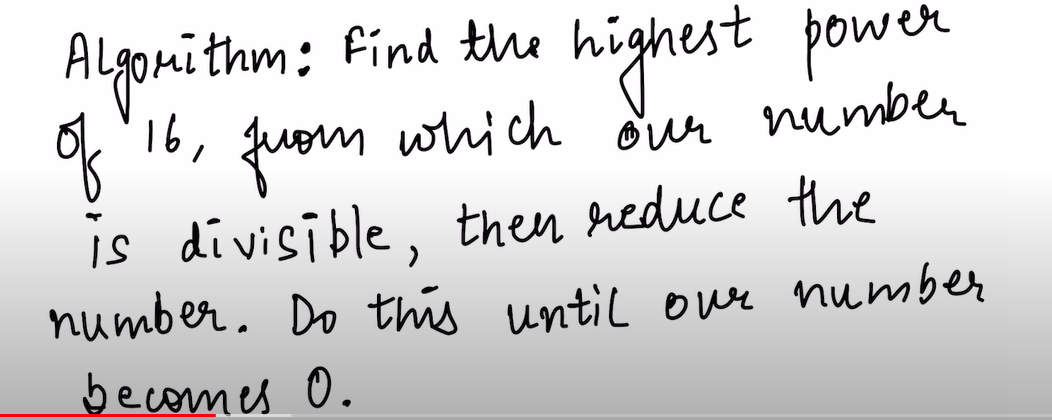 Algorithm: Find the highest power
of 16, from which our number
is divisible, then reduce the
number. Do this until our number
becomes 0.